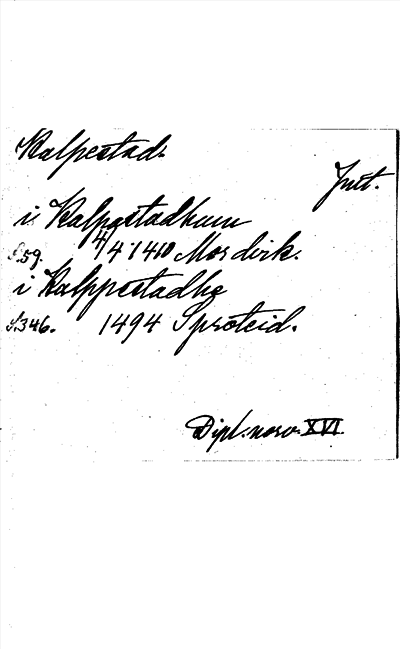 Kalpestad.
Jnt.
i Kalpestadhum
S.59. 4/4 1410 Mosdvik.
i Kalppestadhe
S.346. 1494 Sproteid.
Dipl. norv. XVI.